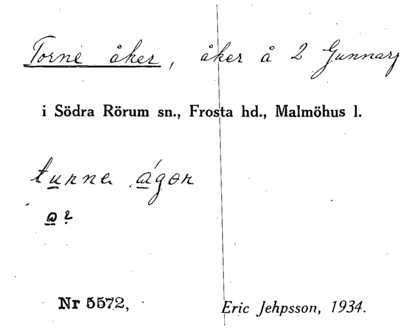 Torne åker, åker å 2 Gunnarp
i Södra Rörum sn., Frosta hd., Malmöhus l.
tunne ágon
a?
Nr 5572,
Eric Jehpsson, 1934.